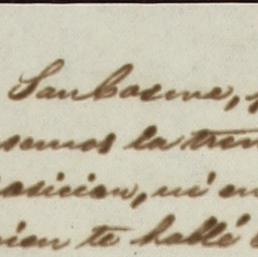 San Cosme,
semos la tren
asicion, ni en
bien te hallé